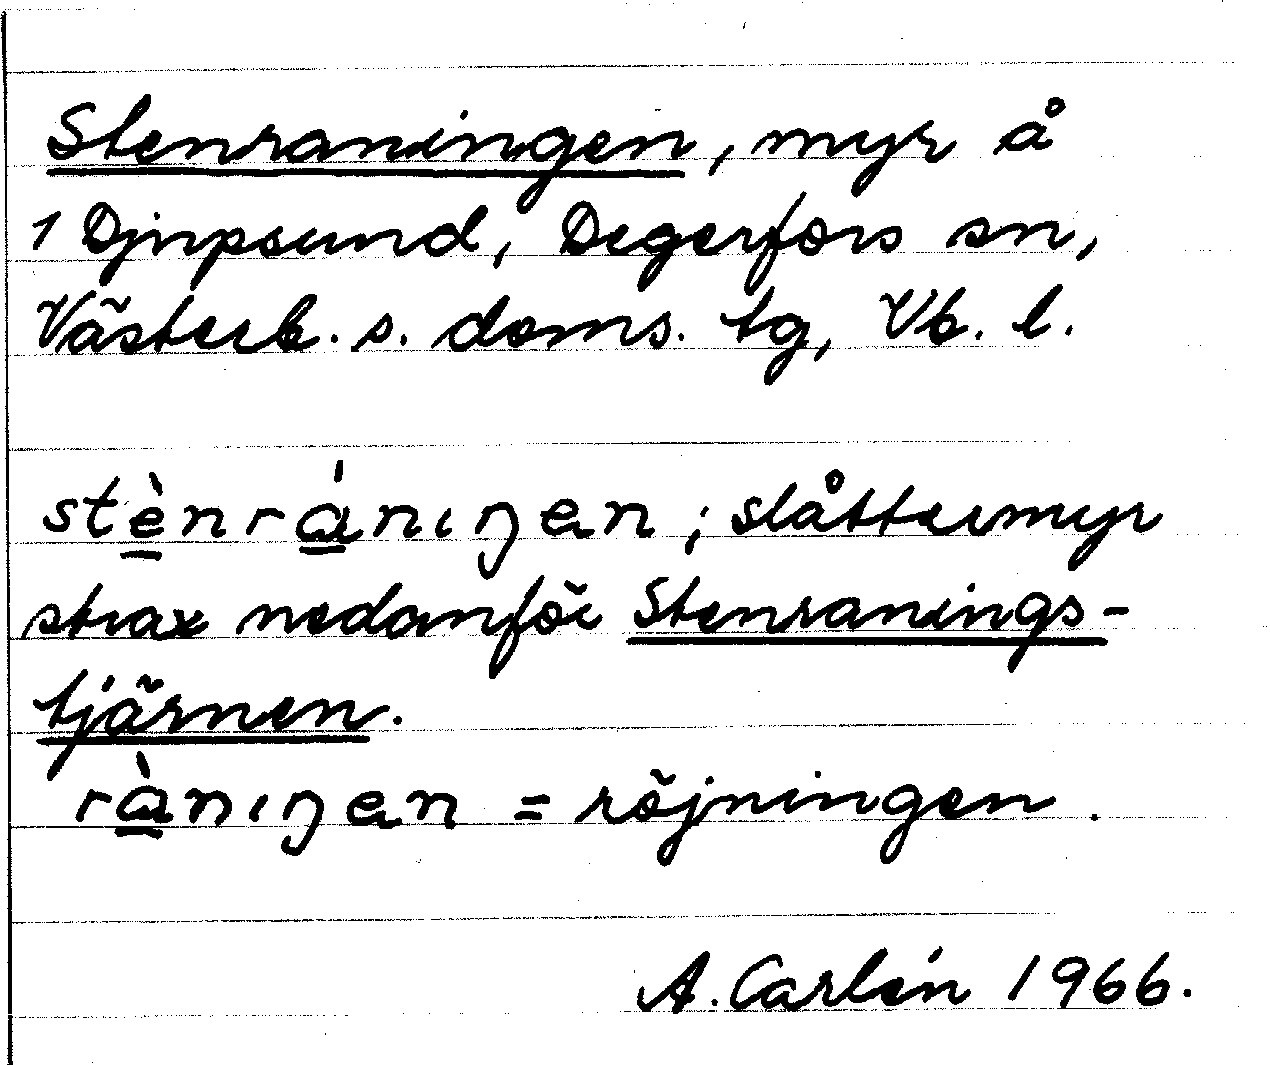 Stenraningen, myr å
1 Djupsund, Degerfors sn,
Västerb. s. doms. tg, Vb. l.
stè̱nrá̱nıŋen; slåttermyr
strax nedanför Stenranings-
tjärnen.
rà̱nıŋen = röjningen.
A. Carlén 1966.